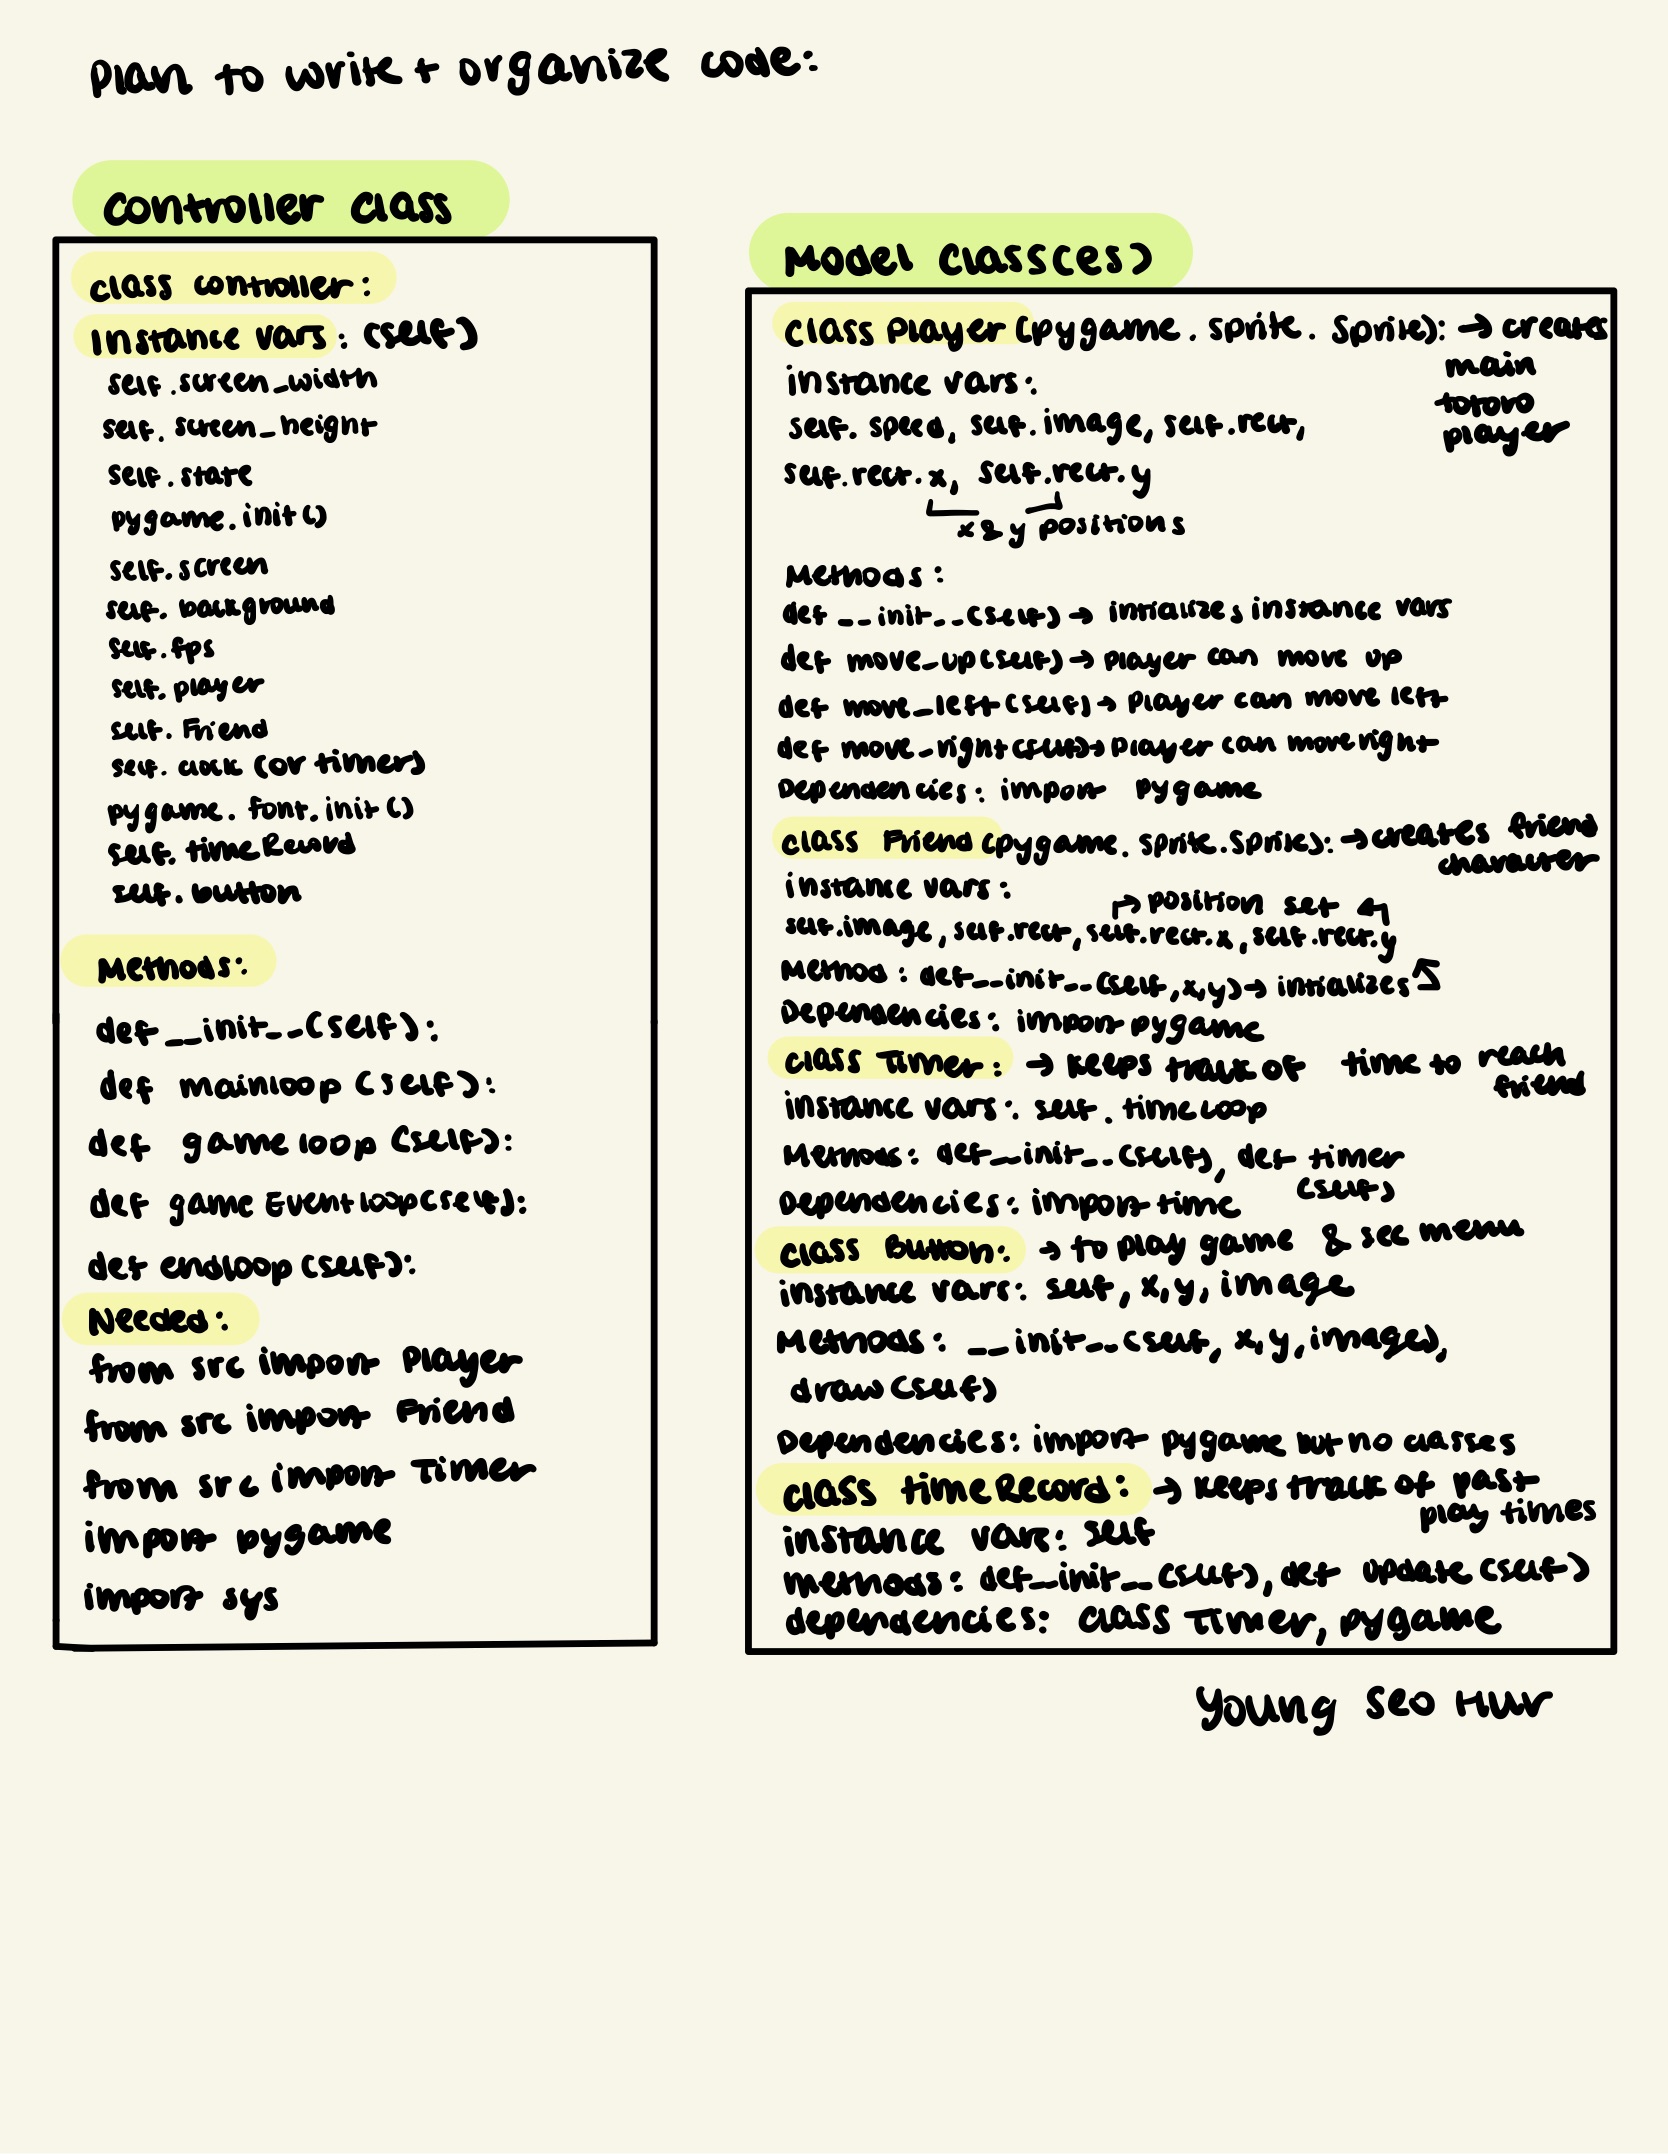 Plan to write + organize code:
Controller class
class controller:
Instance vars: (self)
self.screen_width
self.screen_height
self.state
pygame.init()
self.screen
self.background
self.fps
self.player
self.Friend
self.clock (or timer)
pygame.font.init()
self.timeRecord
self.button
Methods:
def __init__(self):
def mainloop (self):
def gameloop (self):
def gameEventloop(self):
def endloop(self):
Needed:
from src import Player
from src import Friend
from src import Timer
import pygame
import sys
Model Class(es)
class Player (pygame.sprite.Sprite): → creates
main
totoro
player
instance vars:
self.speed, self.image, self.rect,
self.rect.x, self.rect.y
x & y positions
Methods:
def __init__(self) → intializes instance vars
def move_up(self) → player can move up
def move_left(self) → player can move left
def move_right(self) → player can move right
Dependencies: import pygame
class Friend (pygame.sprite.Sprite): → creates friend
character
instance vars:
→ position set ←
self.image, self.rect, self.rect.x, self.rect.y
Method: def__init__(self,x,y) → intializes
Dependencies: import pygame
class Timer: → keeps track of time to reach
friend
instance vars: self.timeloop
Methods: def__init__(self), def timer
(self)
Dependencies: import time
class Button: → to play game & see menu
instance vars: self, x,y, image
Methods: __init__(self, x,y,image),
draw(self)
Dependencies: import pygame but no classes
class timeRecord: → keeps track of past
play times
instance vars: self
methods: def__init__(self), def update(self)
dependencies: class Timer, pygame
Young Seo Hur